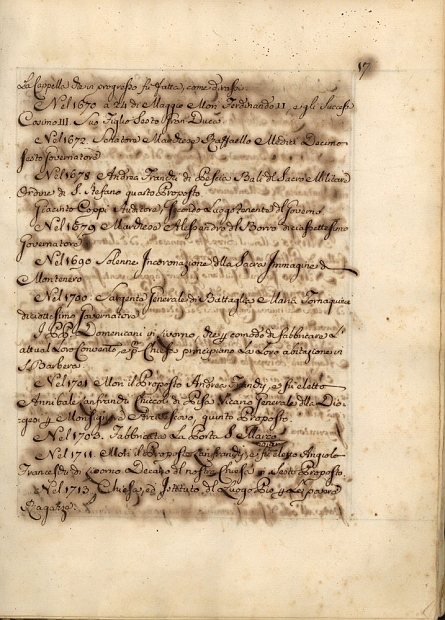 17
La Cappella che in progresso fù fatta, come dirassi.
Nel 1670 a 24 di Maggio Morì Ferdinando II e gli Successe
Cosimo III Suo Figlio Sesto Gran Duca
Nel 1672 Senatore Marchese Raffaello Medici Decimo
Sesto Governatore
Nel 1678 Andrea Franchi di Pescia Balì del Sacro Militare
Ordine di S. Stefano quarto Proposto
Giacinto Coppi Auditore, Secondo Luogotenente di Governo
Nel 1679 Marchese Alessandro del Borro diciasettesimo
Governatore
Nel 1690 Solenne Incoronazione della Sacra Immagine di
Montenero
Nel 1700 Sargente Generale di Battaglia Mario Tornaquinci
Governatore
PP. Domenicani di Livorno, che p comodo di fabbricare L'
attual Loro Convento, e Chiesa principiano La Loro abitazione in
S. Barbera
Nel 1701 Morì il Proposto Andrea Franchi, e fù eletto
Annibale Lanfranchi di Pisa Vicario Generale della Dio-
cesi, quinto Proposto.
Nel 1703. Fabbricata La Porta S. Marco
Nel 1711 Morì il Proposto Lanfranchi, e fù eletto Angiolo
Franceschi di Livorno Decano di nostra Chiesa Sesto Proposto
Nel 1713 Chiesa, ed Istituto del Luogo Pio p Le povere
Ragazze.